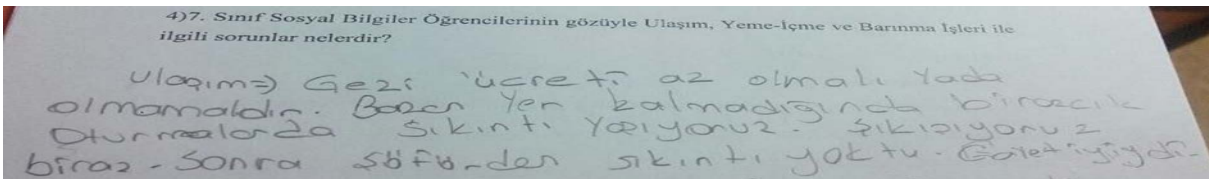 4)7. Sınıf Sosyal Bilgiler Öğrencilerinin gözüyle Ulaşım, Yeme-İçme ve Barınma İşleri ile
ilgili sorunlar nelerdir?
Ulaşım⇒ Gezi ücreti az olmalı Yada
olmamaldır. Bazen Yer kalmadığında birazcık
Oturmalarda Sıkıntı Yaşıyoruz. Şıkışıyoruz
biraz - Sonra şöförden sıkıntı yoktu. Gayet iyiydi-